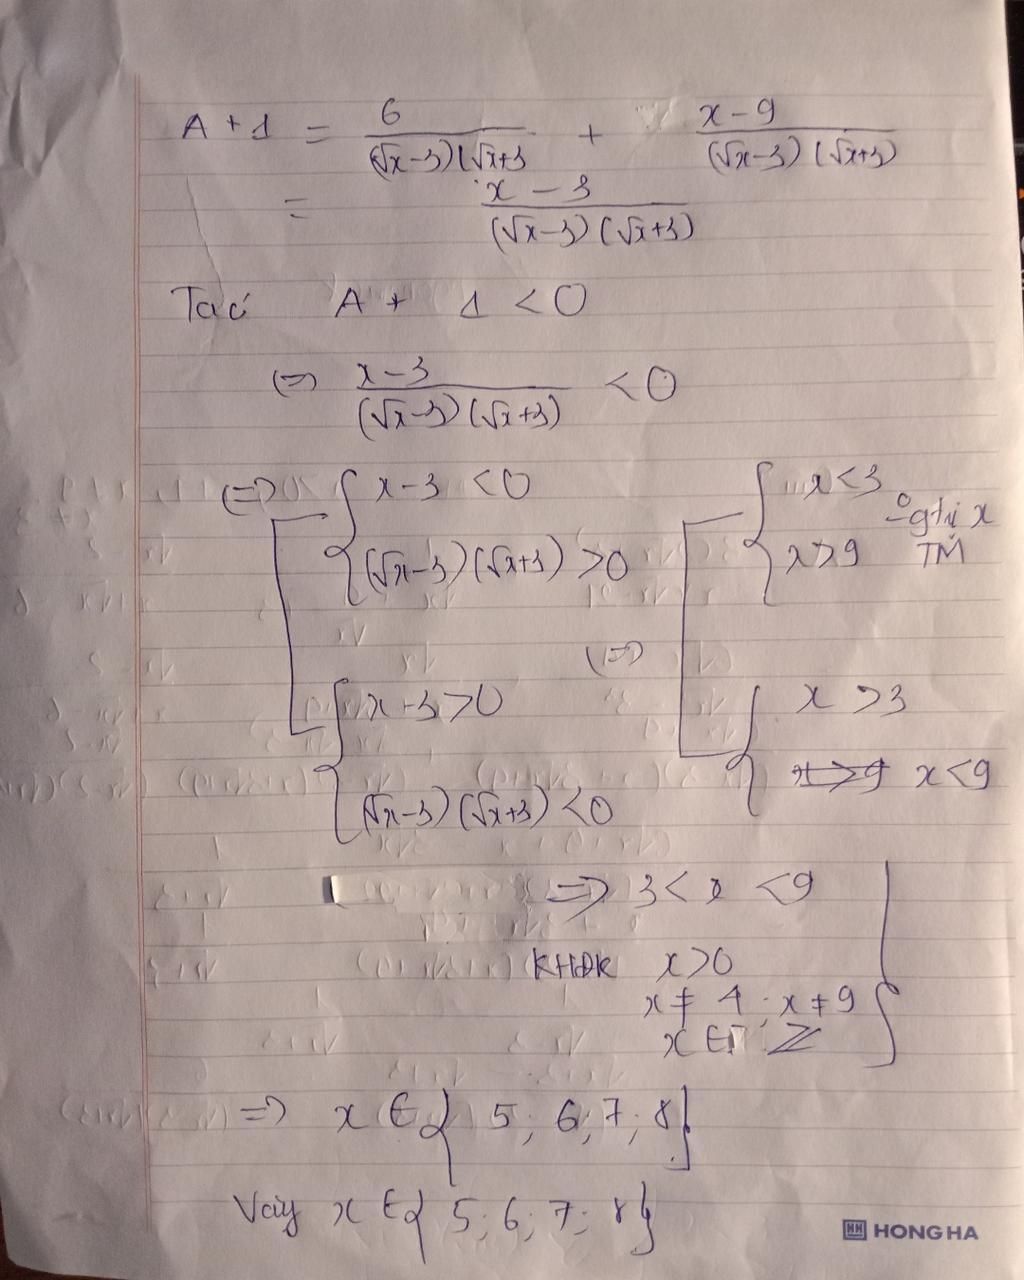 A + 1 = 6/((√x-3)(√x+3) + x-9/((√x-3)(√x+3))
= x-3/((√x-3)(√x+3))
Ta có A + 1 < 0
(=) x-3/((√x-3)(√x+3)) < 0
(=) [ { x-3 < 0
(√x-3)(√x+3) > 0
{ x-3 > 0
(√x-3)(√x+3) < 0
(=) [ { x < 3
x > 9
gtrị x
TM
{ x > 3
x > 9 x < 9
=> 3 < x < 9
KHĐK x > 0
x ≠ 4 ; x ≠ 9
x ∈ Z
=> x ∈ { 5; 6; 7; 8}
Vậy x ∈ { 5; 6; 7; 8}
HH HONG HA